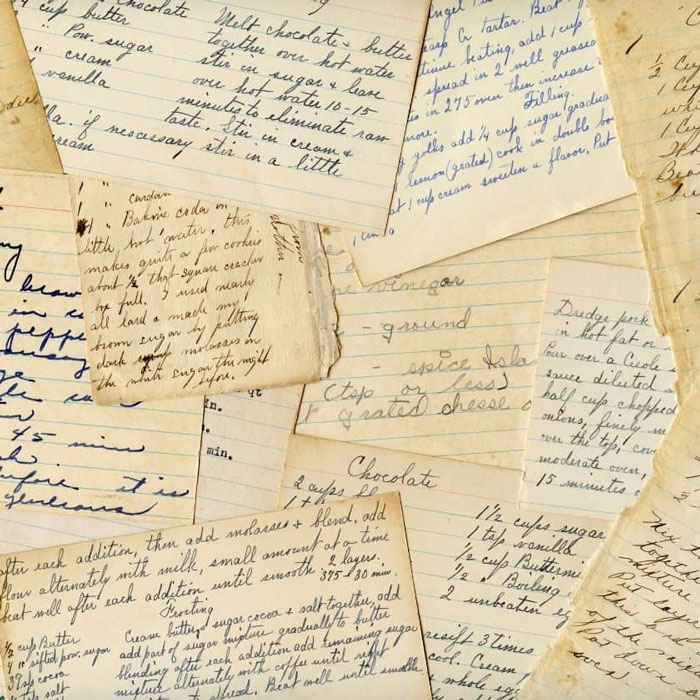 Chocolate
4 cup butter
" Pow. sugar
" cream
vanilla
Melt chocolate & butter
together over hot water
stir in sugar & leave
over hot water 10-15
minutes to eliminate raw
taste. Stir in cream &
la. if nescessary stir in a little
cream
Cr Tartar. Beat
tinue beating, add 1 cup
spread in 2 well grease
in 275 oven then increase
more. Filling.
yolks add 1/4 cup sugar gradua
lemon (grated) cook in double bo
at 1 cup cream sweeten & flavor. Put
1
1/2 Cu
1 Cup
1 Cup
1 "
" Baking soda in
little hot water, this
makes quite a few cookies
about 1/2 that square cracker
box full. I used nearly
all lard & made my
brown sugar by putting
dark molasses in
the white sugar the night
before.
brow
in
peppe
45 min
before it is
generous
in.
qt
min.
vinegar
- ground
- spice Isla
(tsp or less)
grated cheese
Dredge pork
in hot fat or
Pour over a Creole
sauce diluted
half cup chopped
onions, finely m
over the top, cov
moderate oven,
15 minutes
Chocolate
2 cups fl
1 1/2 cups sugar
1 tsp vanilla
1/2 cup Buttermi
1/2 " Boiling
2 unbeaten eg
resift 3 times
cool. Cream
whole eg
after each addition, then add molasses & blend. add
flour alternately with milk, small amount at a time
beat well after each addition until smooth 2 layers.
375 - 30 min.
Frosting
1/2 cup Butter
4 " sifted pow. sugar
3 tsp cocoa
salt
Cream butter, sugar cocoa & salt together, add
add part of sugar mixture gradually to butter
blending after each addition add remaining sugar
mixture alternately with coffee until right
to spread. Beat well until smooth
Mix
togeth
mixture
Pat
this
of the
oven